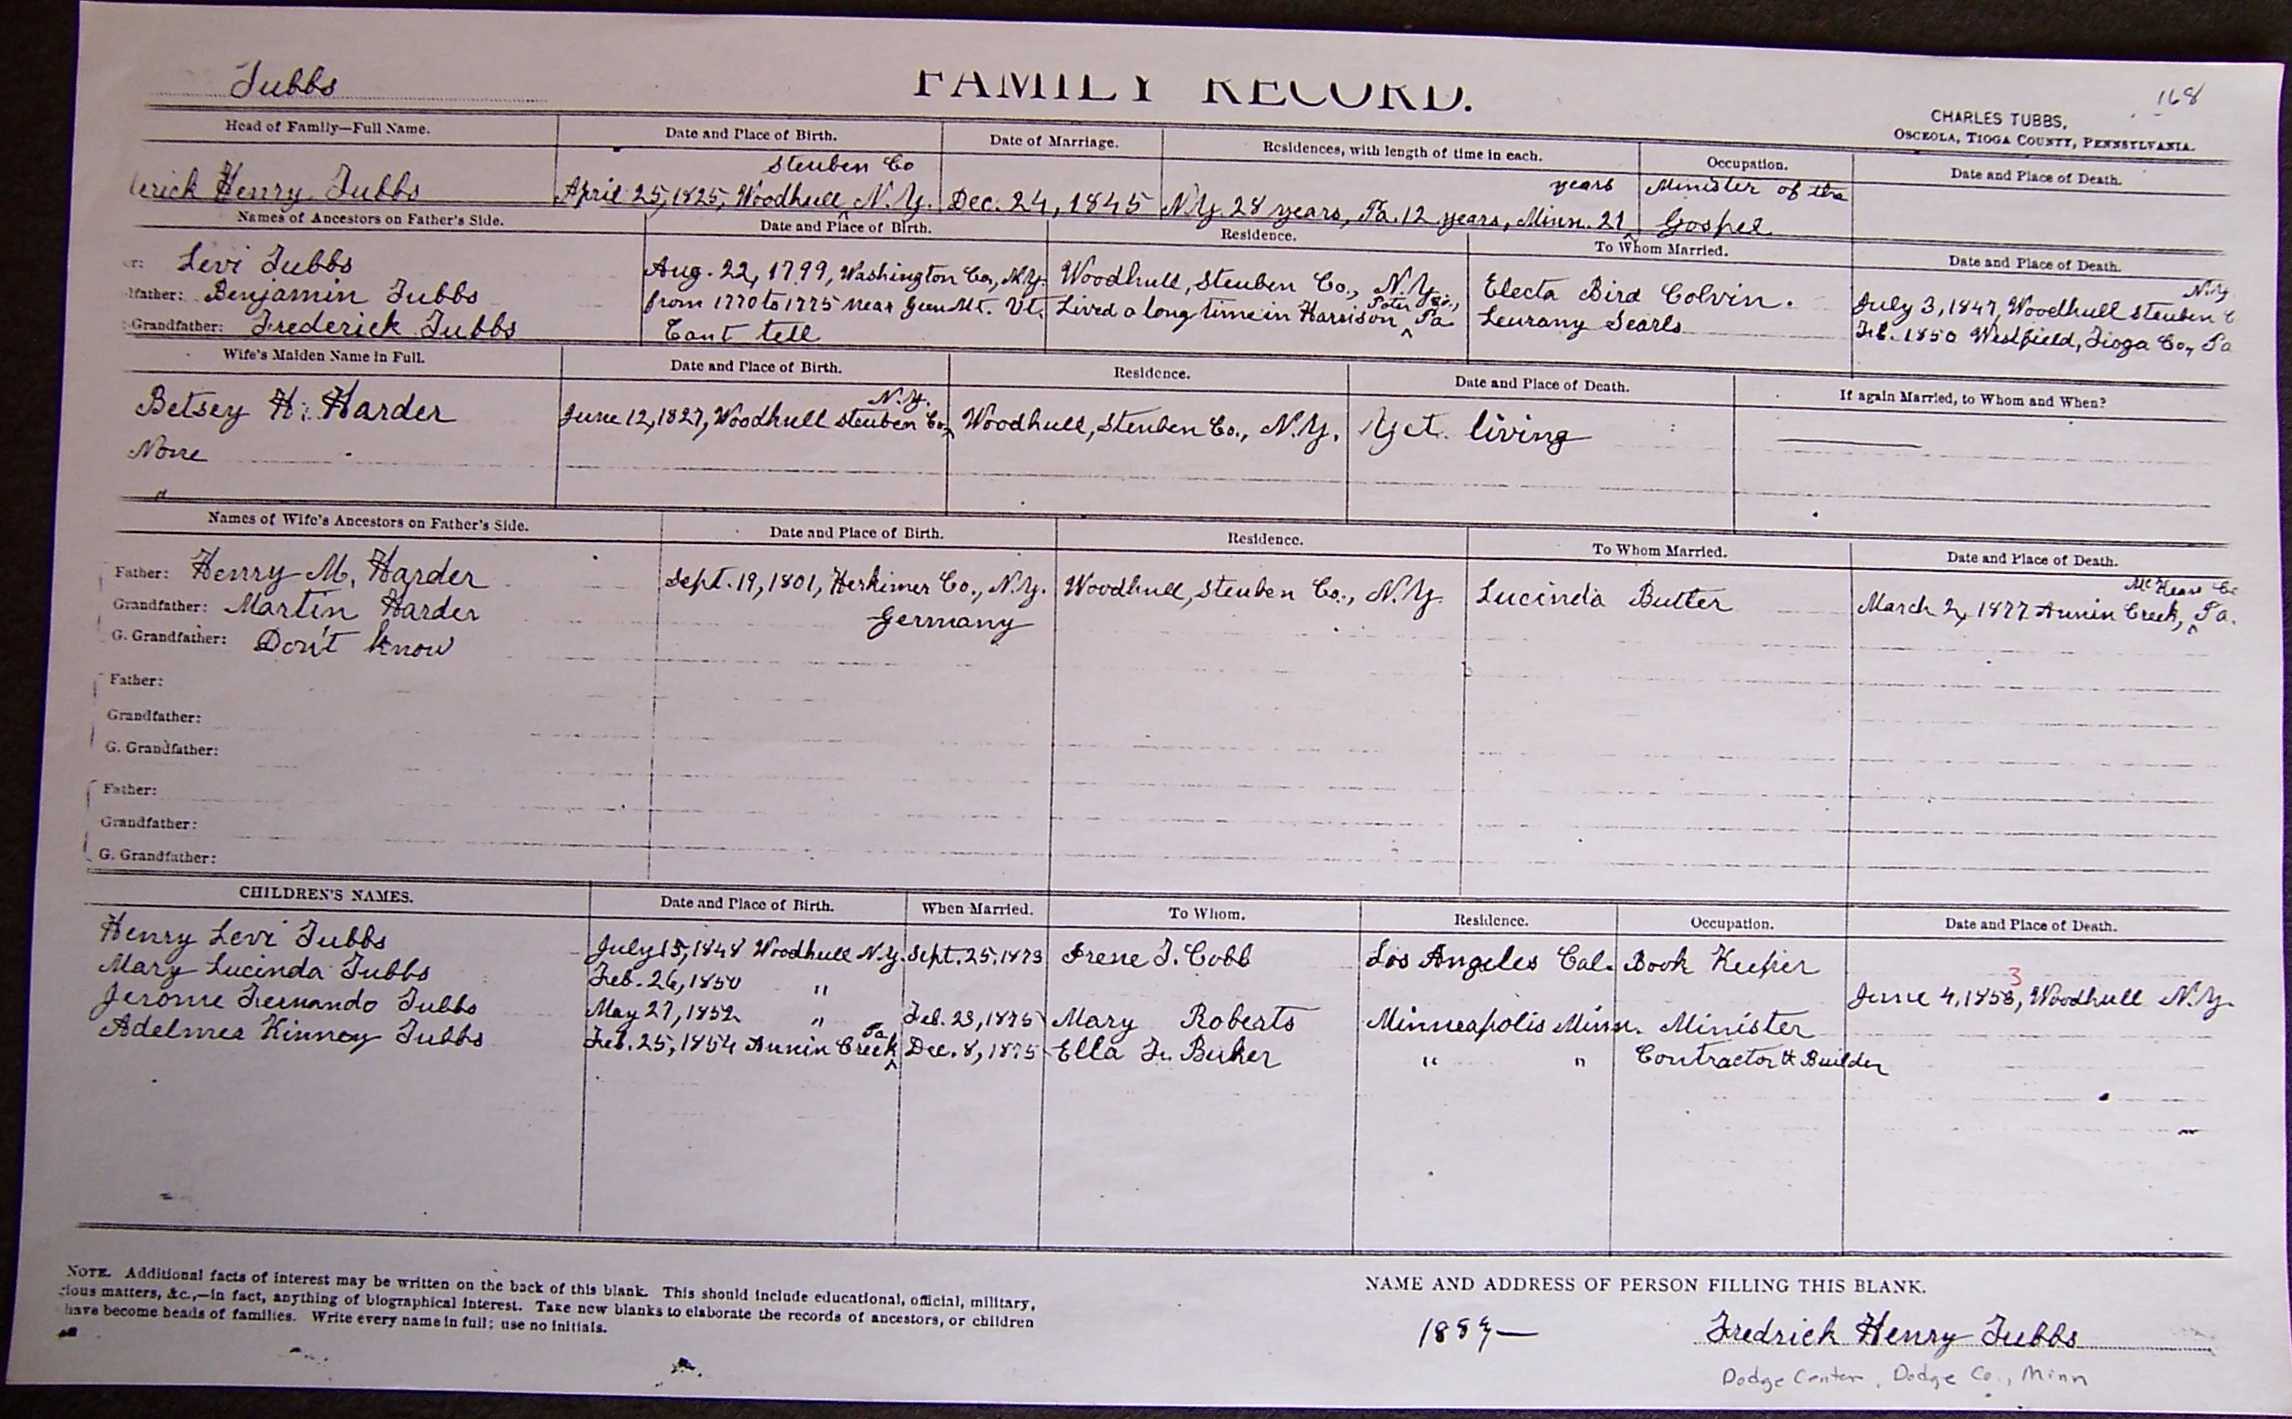 Tubbs
FAMILY RECORD.
168
CHARLES TUBBS,
OSCEOLA, TIOGA COUNTY, PENNSYLVANIA.
Head of Family—Full Name. Date and Place of Birth. Date of Marriage. Residences, with length of time in each. Occupation. Date and Place of Death.
Steuben Co years Minister of the
erick Henry Tubbs April 25, 1825, Woodhull ^ N.Y. Dec. 24, 1845 N.Y. 28 years, Pa. 12 years, Minn. 21 ^ Gospel
Names of Ancestors on Father's Side. Date and Place of Birth. Residence. To Whom Married. Date and Place of Death.
r: Levi Tubbs Aug. 22, 1799, Washington Co., N.Y. Woodhull, Steuben Co., N.Y. Electa Bird Colvin. July 3, 1847, Woodhull Steuben C N.Y
father: Benjamin Tubbs from 1770 to 1775 near Green Mt. Vt. Lived a long time in Harrison ^ Poter Co., Pa Leurany Searls Feb. 1850 Westfield, Tioga Co., Pa
Grandfather: Frederick Tubbs Cant tell
Wife's Maiden Name in Full. Date and Place of Birth. Residence. Date and Place of Death. If again Married, to Whom and When?
Betsey H. Harder June 12, 1827, Woodhull Steuben Co., ^ N.Y. Woodhull, Steuben Co., N.Y. Yet living
None
"
Names of Wife's Ancestors on Father's Side. Date and Place of Birth. Residence. To Whom Married. Date and Place of Death.
Father: Henry M. Harder Sept. 19, 1801, Herkimer Co., N.Y. Woodhull, Steuben Co., N.Y. Lucinda Butler March 2, 1877 Annin Creek, ^ McKean Co Pa.
Grandfather: Martin Harder Germany
G. Grandfather: Don't know
Father:
Grandfather:
G. Grandfather:
Father:
Grandfather:
G. Grandfather:
CHILDREN'S NAMES. Date and Place of Birth. When Married. To Whom. Residence. Occupation. Date and Place of Death.
Henry Levi Tubbs July 15, 1848 Woodhull N.Y. Sept. 25, 1873 Irene J. Cobb Los Angeles Cal. Book Keeper
Mary Lucinda Tubbs Feb. 26, 1850 " June 4, 1853, Woodhull N.Y. 3
Jerome Fernando Tubbs May 27, 1852 " Feb. 23, 1875 Mary Roberts Minneapolis Minn. Minister
Adelmer Kinney Tubbs Feb. 25, 1854 Annin Creek ^ Pa Dec. 8, 1875 Ella Fr. Barker " " Contractor & Builder
NOTE. Additional facts of interest may be written on the back of this blank. This should include educational, official, military,
ious matters, &c.,—in fact, anything of biographical interest. Take new blanks to elaborate the records of ancestors, or children
have become heads of families. Write every name in full; use no initials.
NAME AND ADDRESS OF PERSON FILLING THIS BLANK.
1889— Fredrick Henry Tubbs
Dodge Center, Dodge Co., Minn